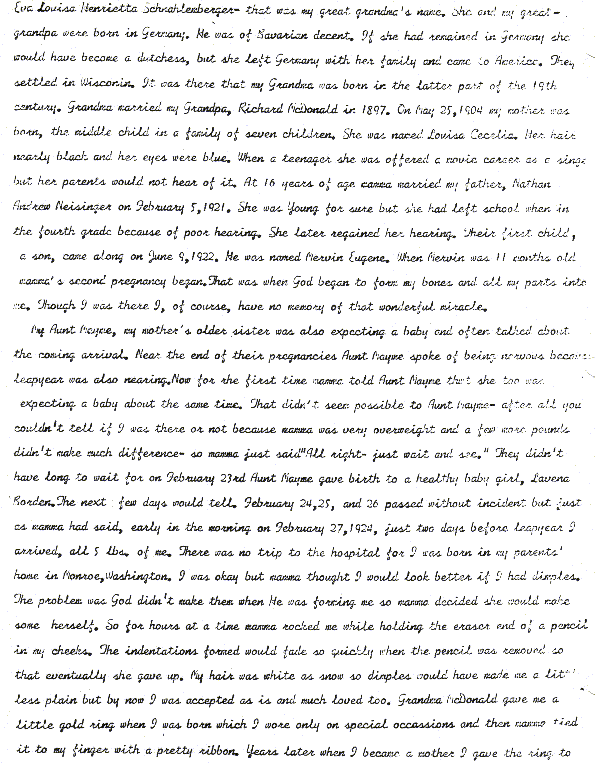 Eva Louisa Henrietta Schnahlenberger- that was my great grandma's name. She and my great-
grandpa were born in Germany. He was of Bavarian decent. If she had remained in Germany she
would have become a dutchess, but she left Germany with her family and came to America. They
settled in Wisconin. It was there that my Grandma was born in the latter part of the 19th
century. Grandma married my Grandpa, Richard McDonald in 1897. On May 25,1904 my mother was
born, the middle child in a family of seven children. She was named Louisa Cecelia. Her hair
nearly black and her eyes were blue. When a teenager she was offered a movie career as a
but her parents would not hear of it. At 16 years of age mamma married my father, Nathan
Andrew Neisinger on February 5,1921. She was Young for sure but she had left school when in
the fourth grade because of poor hearing. She later regained her hearing. Their first child,
a son, came along on June 9,1922. He was named Mervin Eugene. When Mervin was 11 months old
mamma's second pregnancy began.That was when God began to form my bones and all my parts into
me. Though I was there I, of course, have no memory of that wonderful miracle.
My Aunt Mayme, my mother's older sister was also expecting a baby and often talked about
the coming arrival. Near the end of their pregnancies Aunt Mayme spoke of being nervous because
leapyear was also nearing.Now for the first time mamma told Aunt Mayme that she too was
expecting a baby about the same time. That didn't seem possible to Aunt Mayme- after all you
couldn't tell if I was there or not because mamma was very overweight and a few more pounds
didn't make much difference- so mamma just said"All right- just wait and see." They didn't
have long to wait for on February 23rd Aunt Mayme gave birth to a healthy baby girl, Lavena
Borden.The next few days would tell. February 24,25, and 26 passed without incident but just
as mamma had said, early in the morning on February 27,1924, just two days before leapyear I
arrived, all 5 lbs. of me. There was no trip to the hospital for I was born in my parents'
home in Monroe,Washington. I was okay but mamma thought I would look better if I had dimples.
The problem was God didn't make them when He was forming me so mamma decided she would make
some herself. So for hours at a time mamma rocked me while holding the eraser end of a pencil
in my cheeks. The indentations formed would fade so quickly when the pencil was removed so
that eventually she gave up. My hair was white as snow so dimples would have made me a
less plain but by now I was accepted as is and much loved too. Grandma McDonald gave me a
little gold ring when I was born which I wore only on special occassions and then mamma tied
it to my finger with a pretty ribbon. Years later when I became a mother I gave the ring to